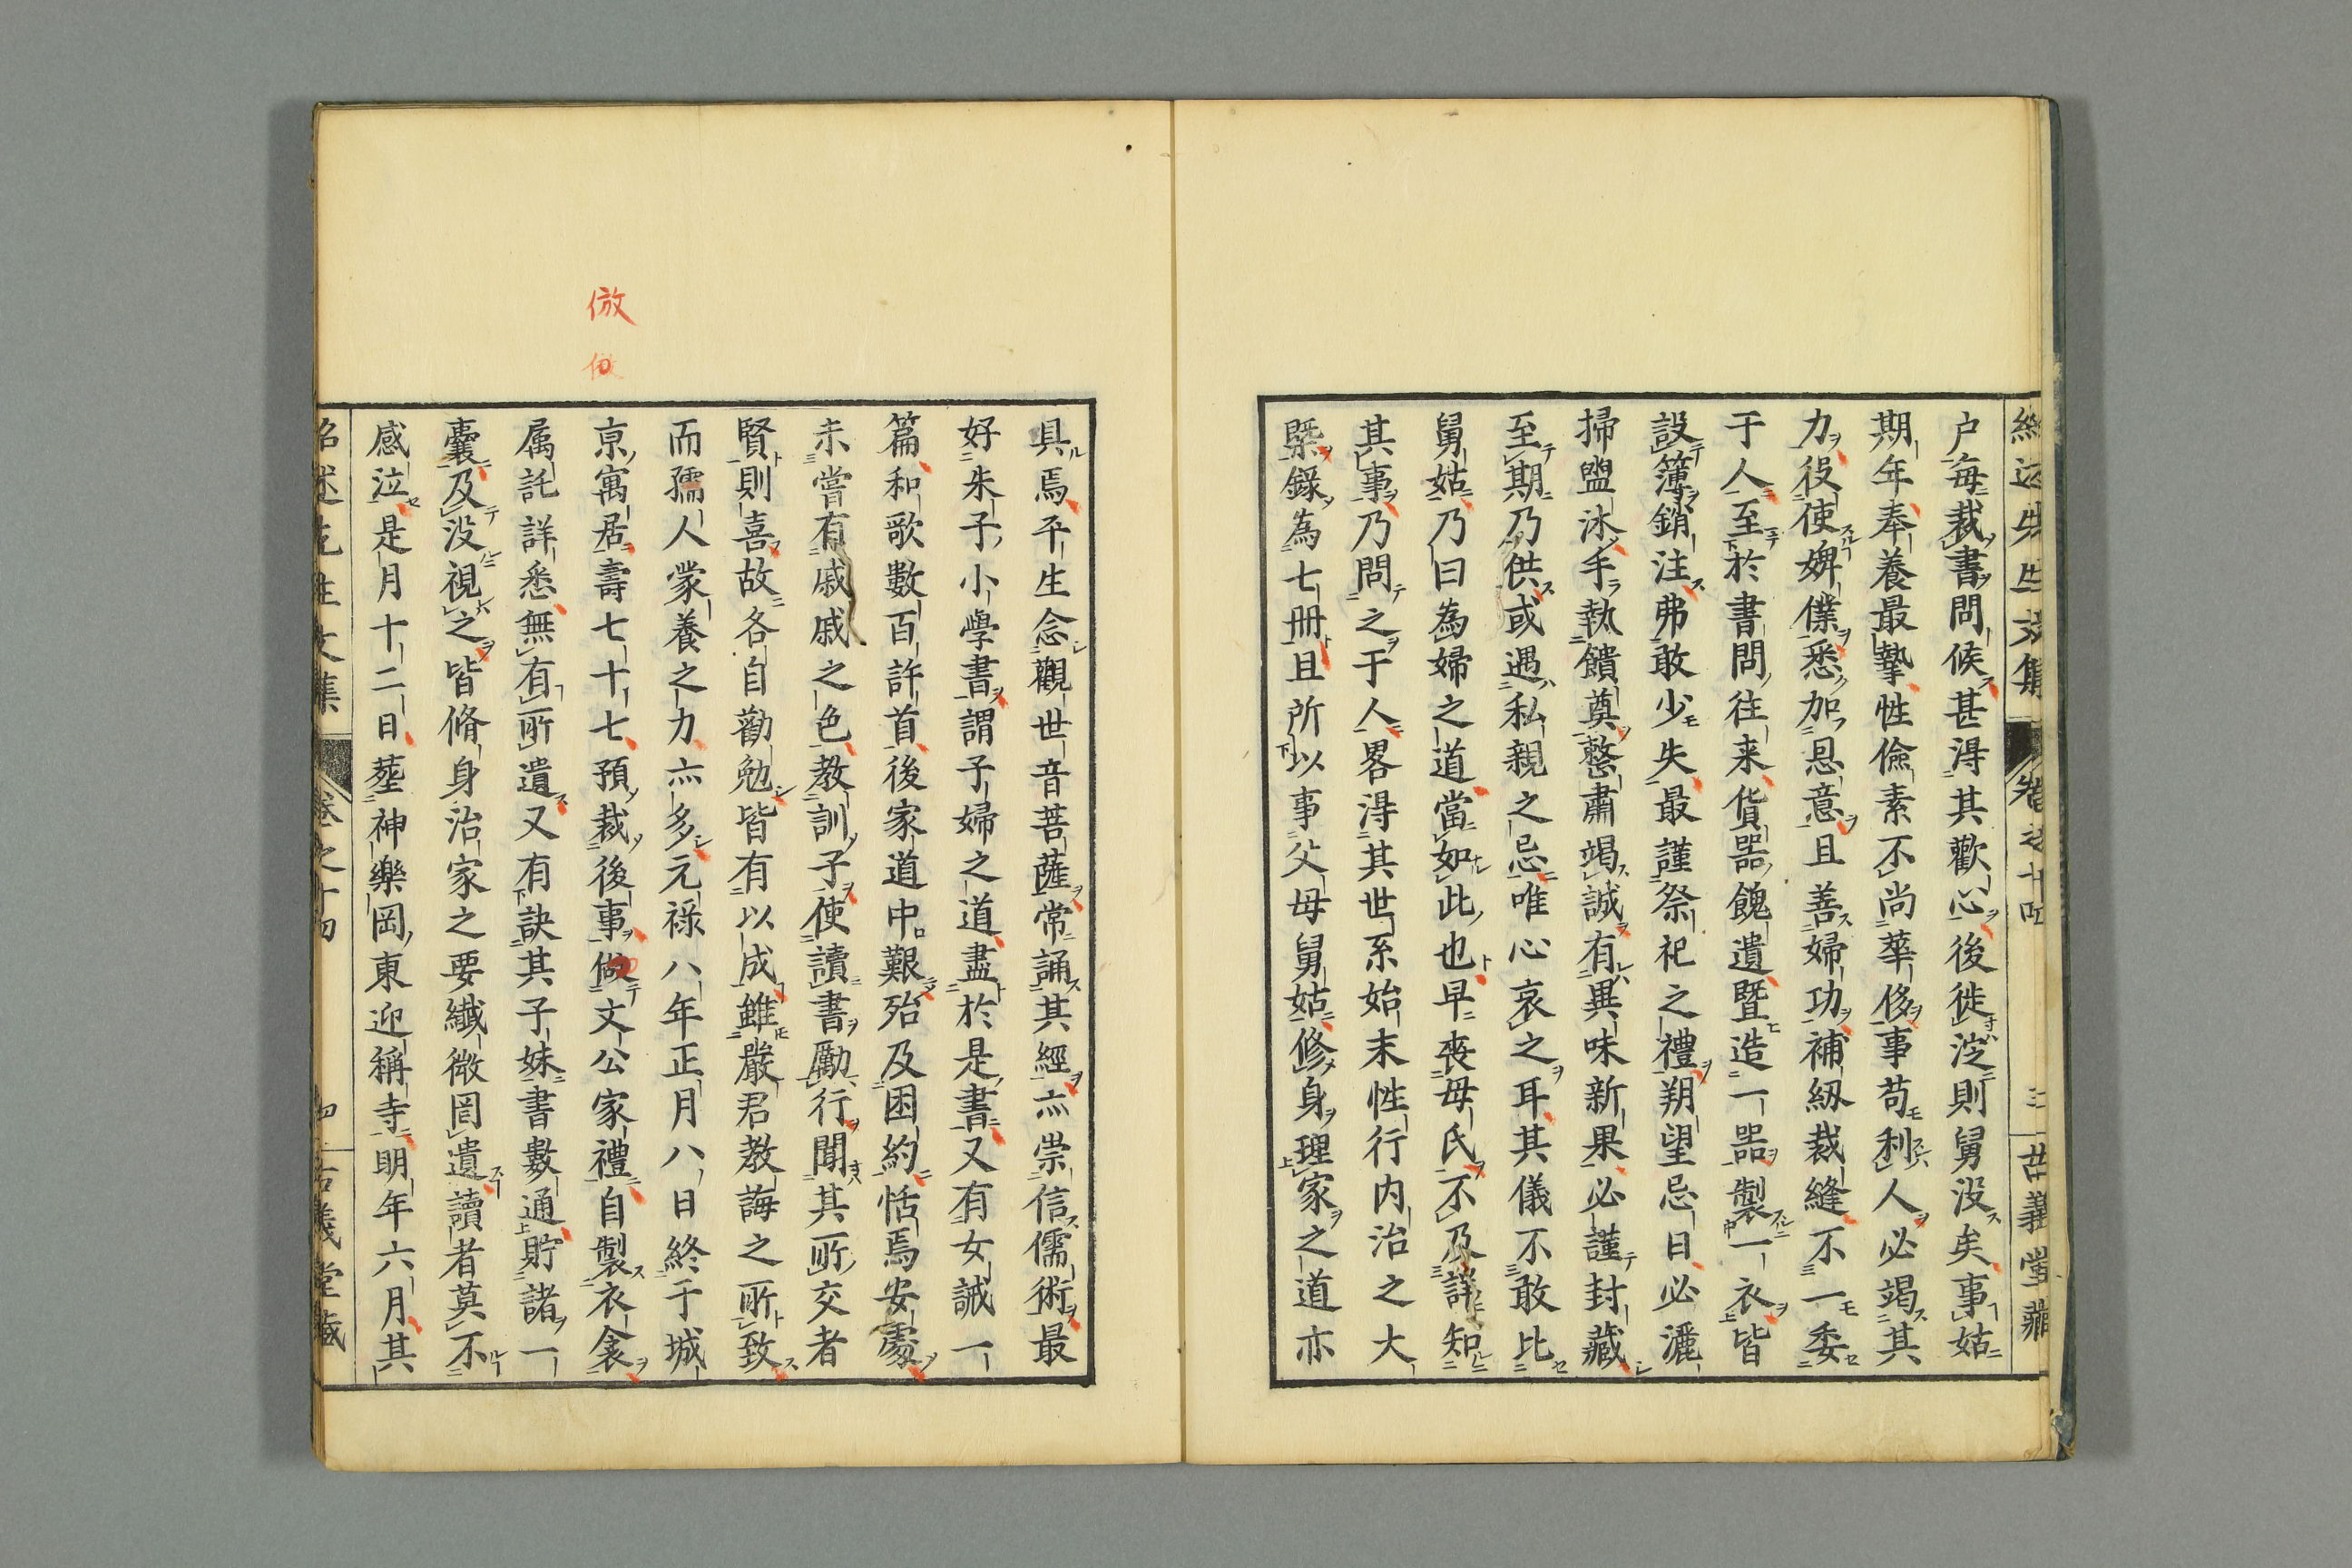 紹述先生文集 卷之十四 三 古義堂藏
户每裁書問候甚得其歡心後徙涖則舅没矣事姑
期年奉養最摯性儉素不尚華侈事苟利人必竭其
力役使婢僕悉加恩意且善婦功補紉裁縫不一委
于人至於書問往来貨器餽遺暨造一器製一衣皆
設簿銷注弗敢少失最謹祭祀之禮朔望忌日必灑
掃盥沐手執饋奠整肅竭誠有異味新果必謹封藏
至期乃供或遇私親之忌唯心哀之耳其儀不敢比
舅姑乃曰為婦之道當如此也早喪母氏不及詳知
其事乃問之于人畧得其世系始末性行内治之大
槩錄為七冊且所以事父母舅姑修身理家之道亦
具焉平生念觀世音菩薩常誦其經亦崇信儒術最
好朱子小學書謂子婦之道盡於是書又有女誡一
篇和歌數百許首後家道中艱殆及困約恬焉安處
未嘗有戚戚之色教訓子使讀書勵行聞其所交者
賢則喜故各自勸勉皆有以成雖嚴君教誨之所致
而孺人蒙養之力亦多元禄八年正月八日終于城
京寓居壽七十七預裁後事倣文公家禮自製衣衾
属託詳悉無有所遺又有訣其子妹書數通貯諸一
囊及没視之皆脩身治家之要纎微罔遺讀者莫不
感泣是月十二日葬神樂岡東迎稱寺明年六月其
紹述先生文集 卷之十四 四 古義堂藏
倣